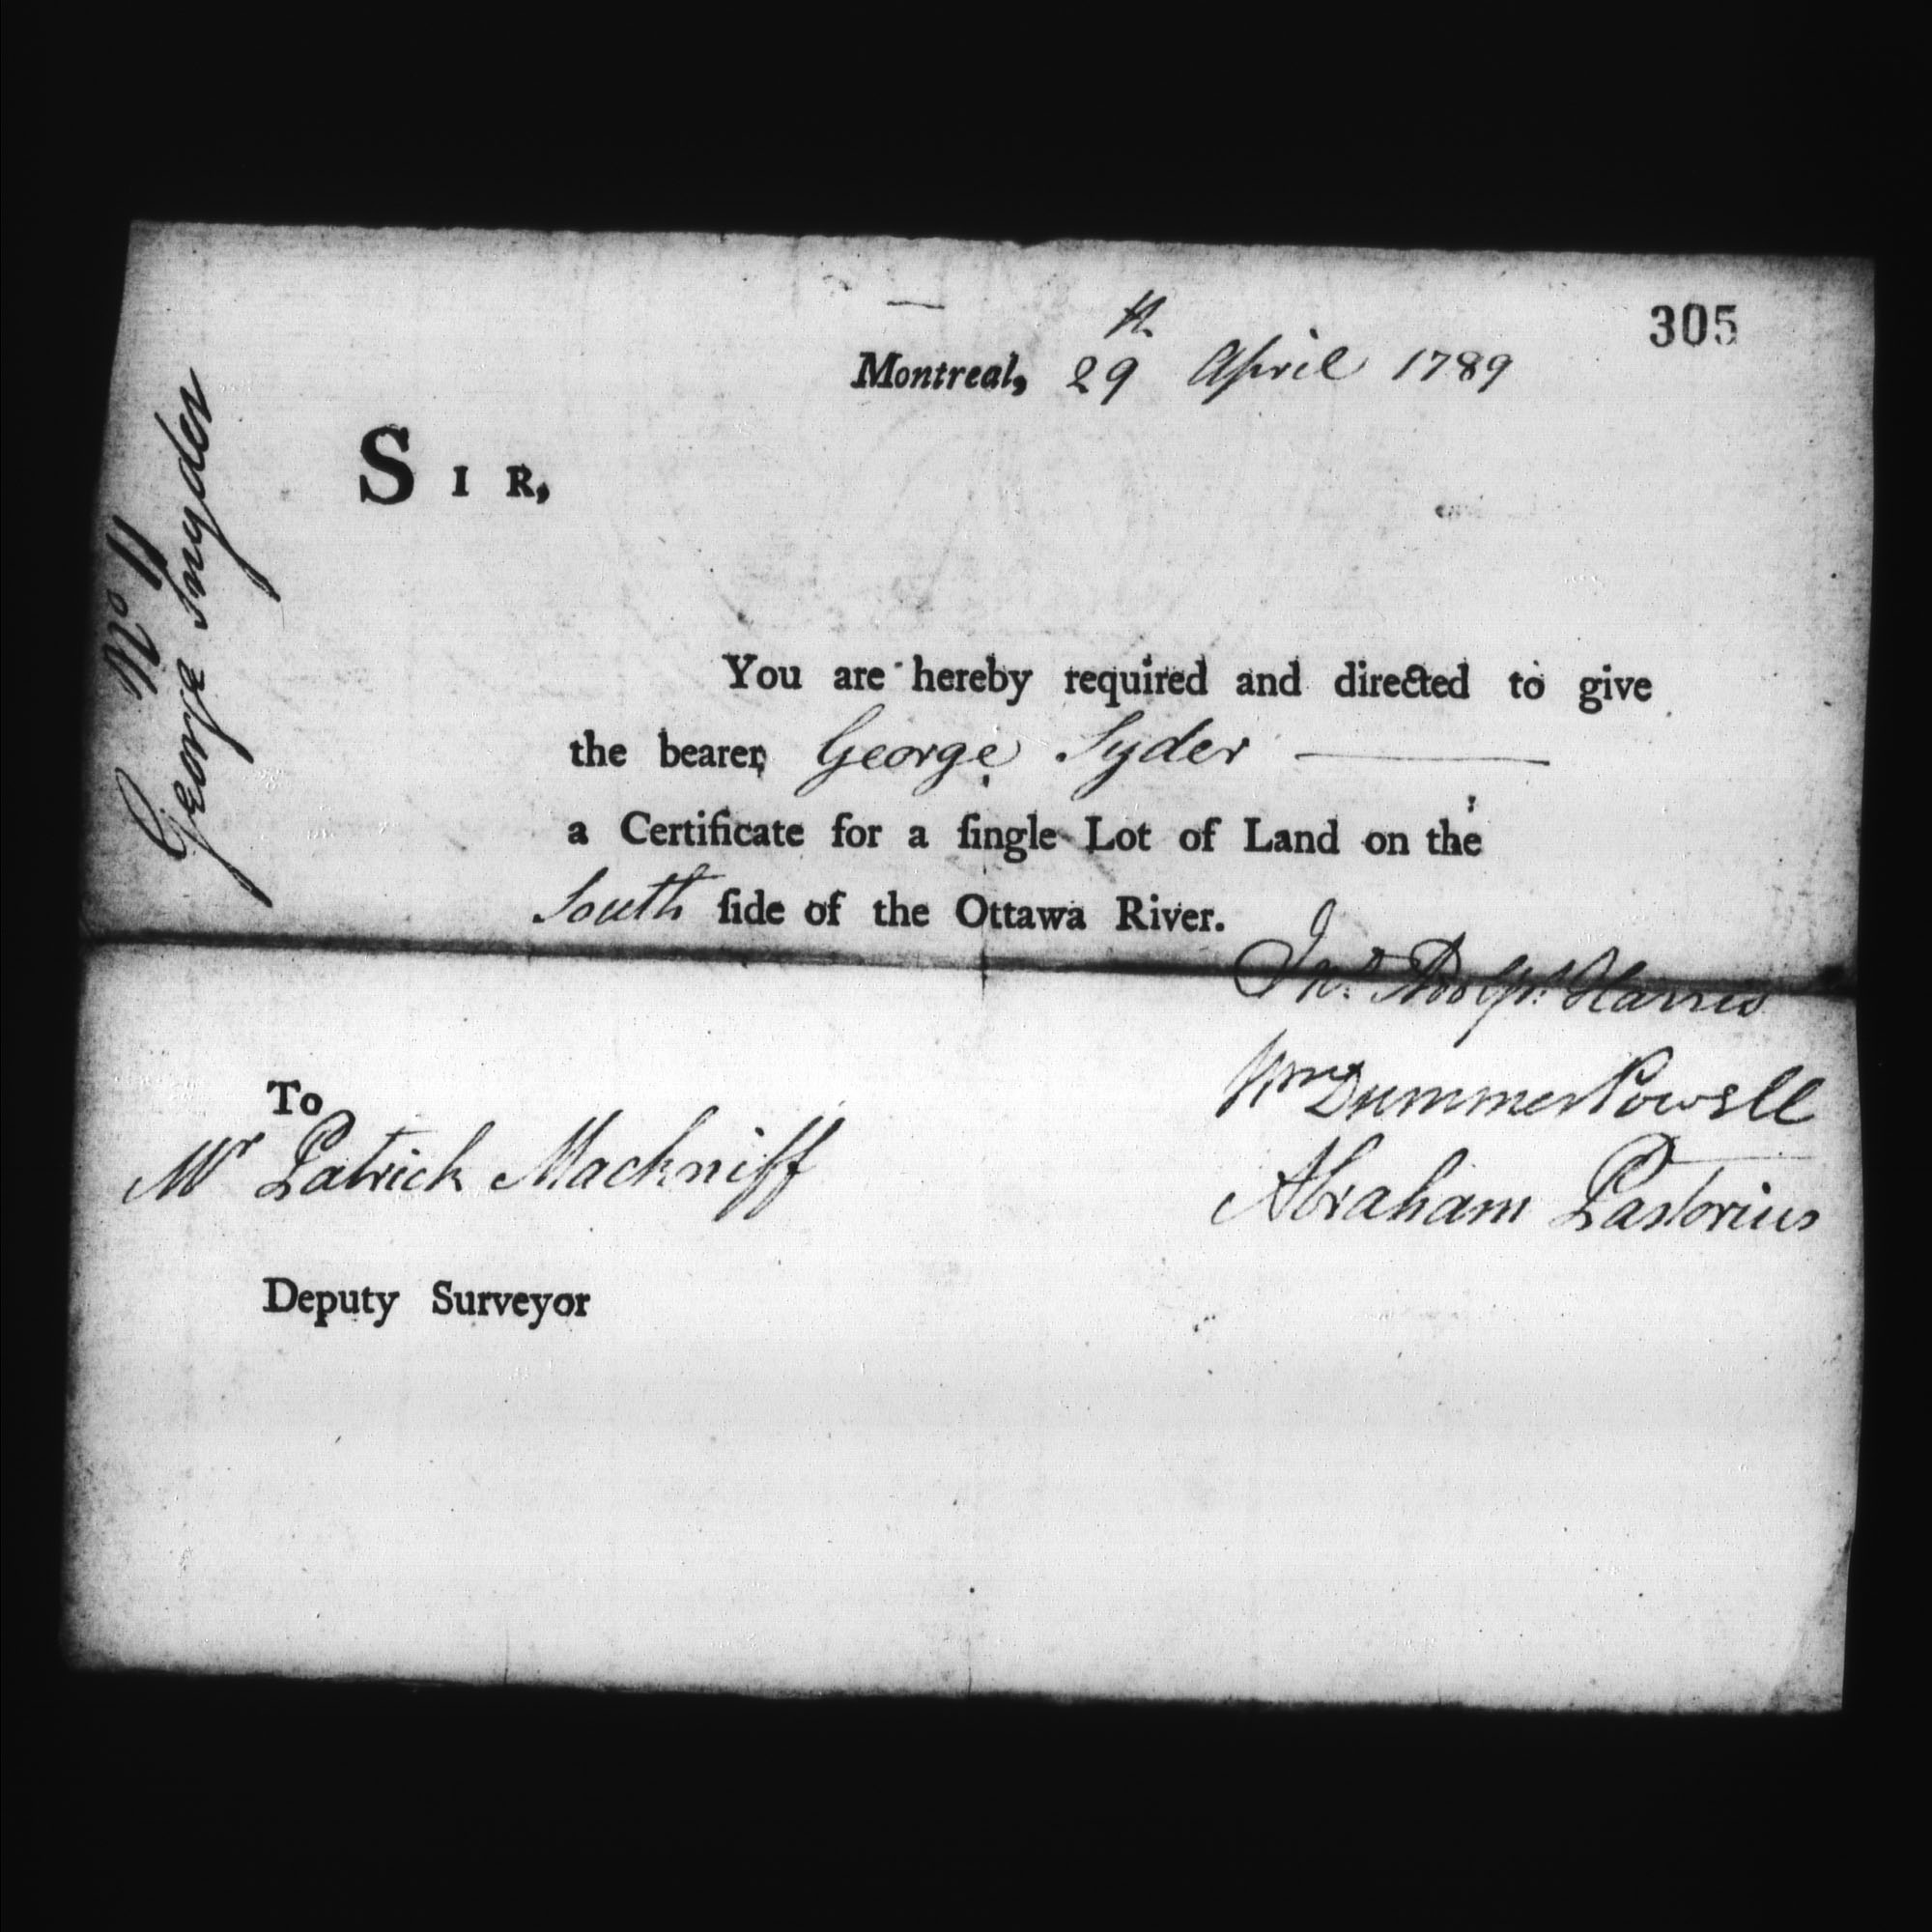 305
Montreal, 29th April 1789
SIR,
You are hereby required and directed to give
the bearer, George Syder
a Certificate for a ſingle Lot of Land on the
South ſide of the Ottawa River.
Jno. Adolps. Harris
Wm Dummer Powell
Abraham Pastorius
To
Mr Patrick Mackniff
Deputy Surveyor
No 11
George Snyder